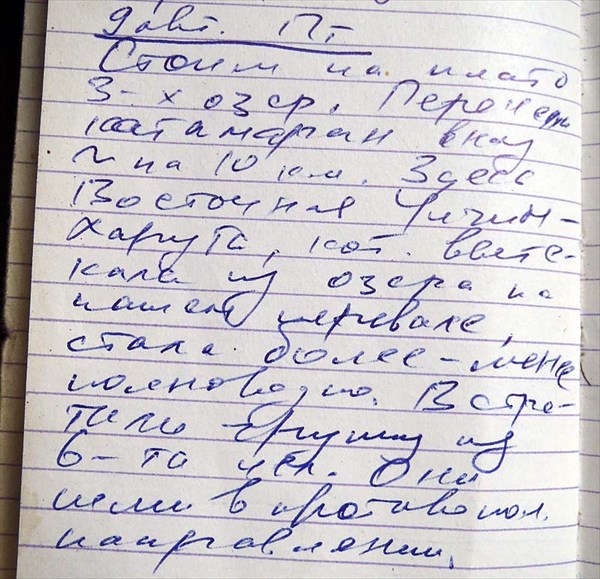 9 авг. Пт
Стоим на плато
3-х озер. Перенесли
катамаран вниз
~ на 10 км. Здесь
Восточная Чичин-
Харута, кот. выте-
кала из озера на
нашем перевале,
стала более-менее
полноводно. Встре-
тили группу из
6-ти чел. Они
шли в противопол.
направлении.